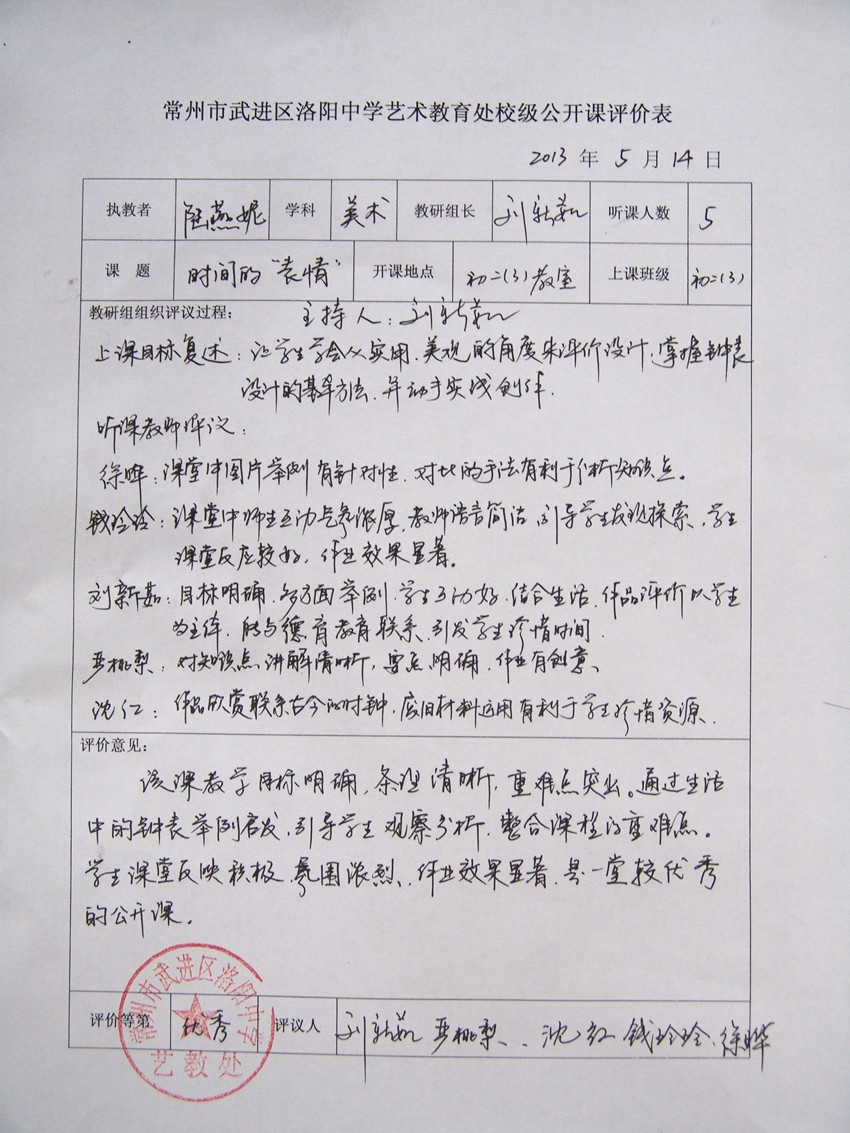 常州市武进区洛阳中学艺术教育处校级公开课评价表
2013 年 5 月 14 日
执教者 陆燕妮 学科 美术 教研组长 刘新茹 听课人数 5
课 题 时间的“表情” 开课地点 初二(3)教室 上课班级 初二(3)
教研组组织评议过程: 主持人:刘新茹
上课目标复述:让学生学会从实用、美观的角度来评价设计,掌握钟表
设计的基本方法,并动手实践创作.
听课教师评议:
徐晔:课堂中图片举例有针对性,对比的手法有利于分析知识点。
钱玲玲:课堂中师生互动气氛浓厚,教师语言简洁,引导学生发现探索,学生
课堂反应较好,作业效果显著。
刘新茹:目标明确,多方面举例,学生互动好,结合生活,作品评价以学生
为主体,能与德育教育联系,引发学生珍惜时间.
严桃梨:对知识点讲解清晰,要点明确,作业有创意、
沈红:作品欣赏联系古今的时钟,废旧材料运用有利于学生珍惜资源.
评价意见:
该课教学目标明确,条理清晰,重难点突出。通过生活
中的钟表举例启发,引导学生观察分析,整合课程的重难点。
学生课堂反映积极,氛围浓烈、作业效果显著,是一堂较优秀
的公开课。
评价等第 优秀 评议人 刘新茹 严桃梨、沈红 钱玲玲、徐晔
常州市武进区洛阳中学
艺教处